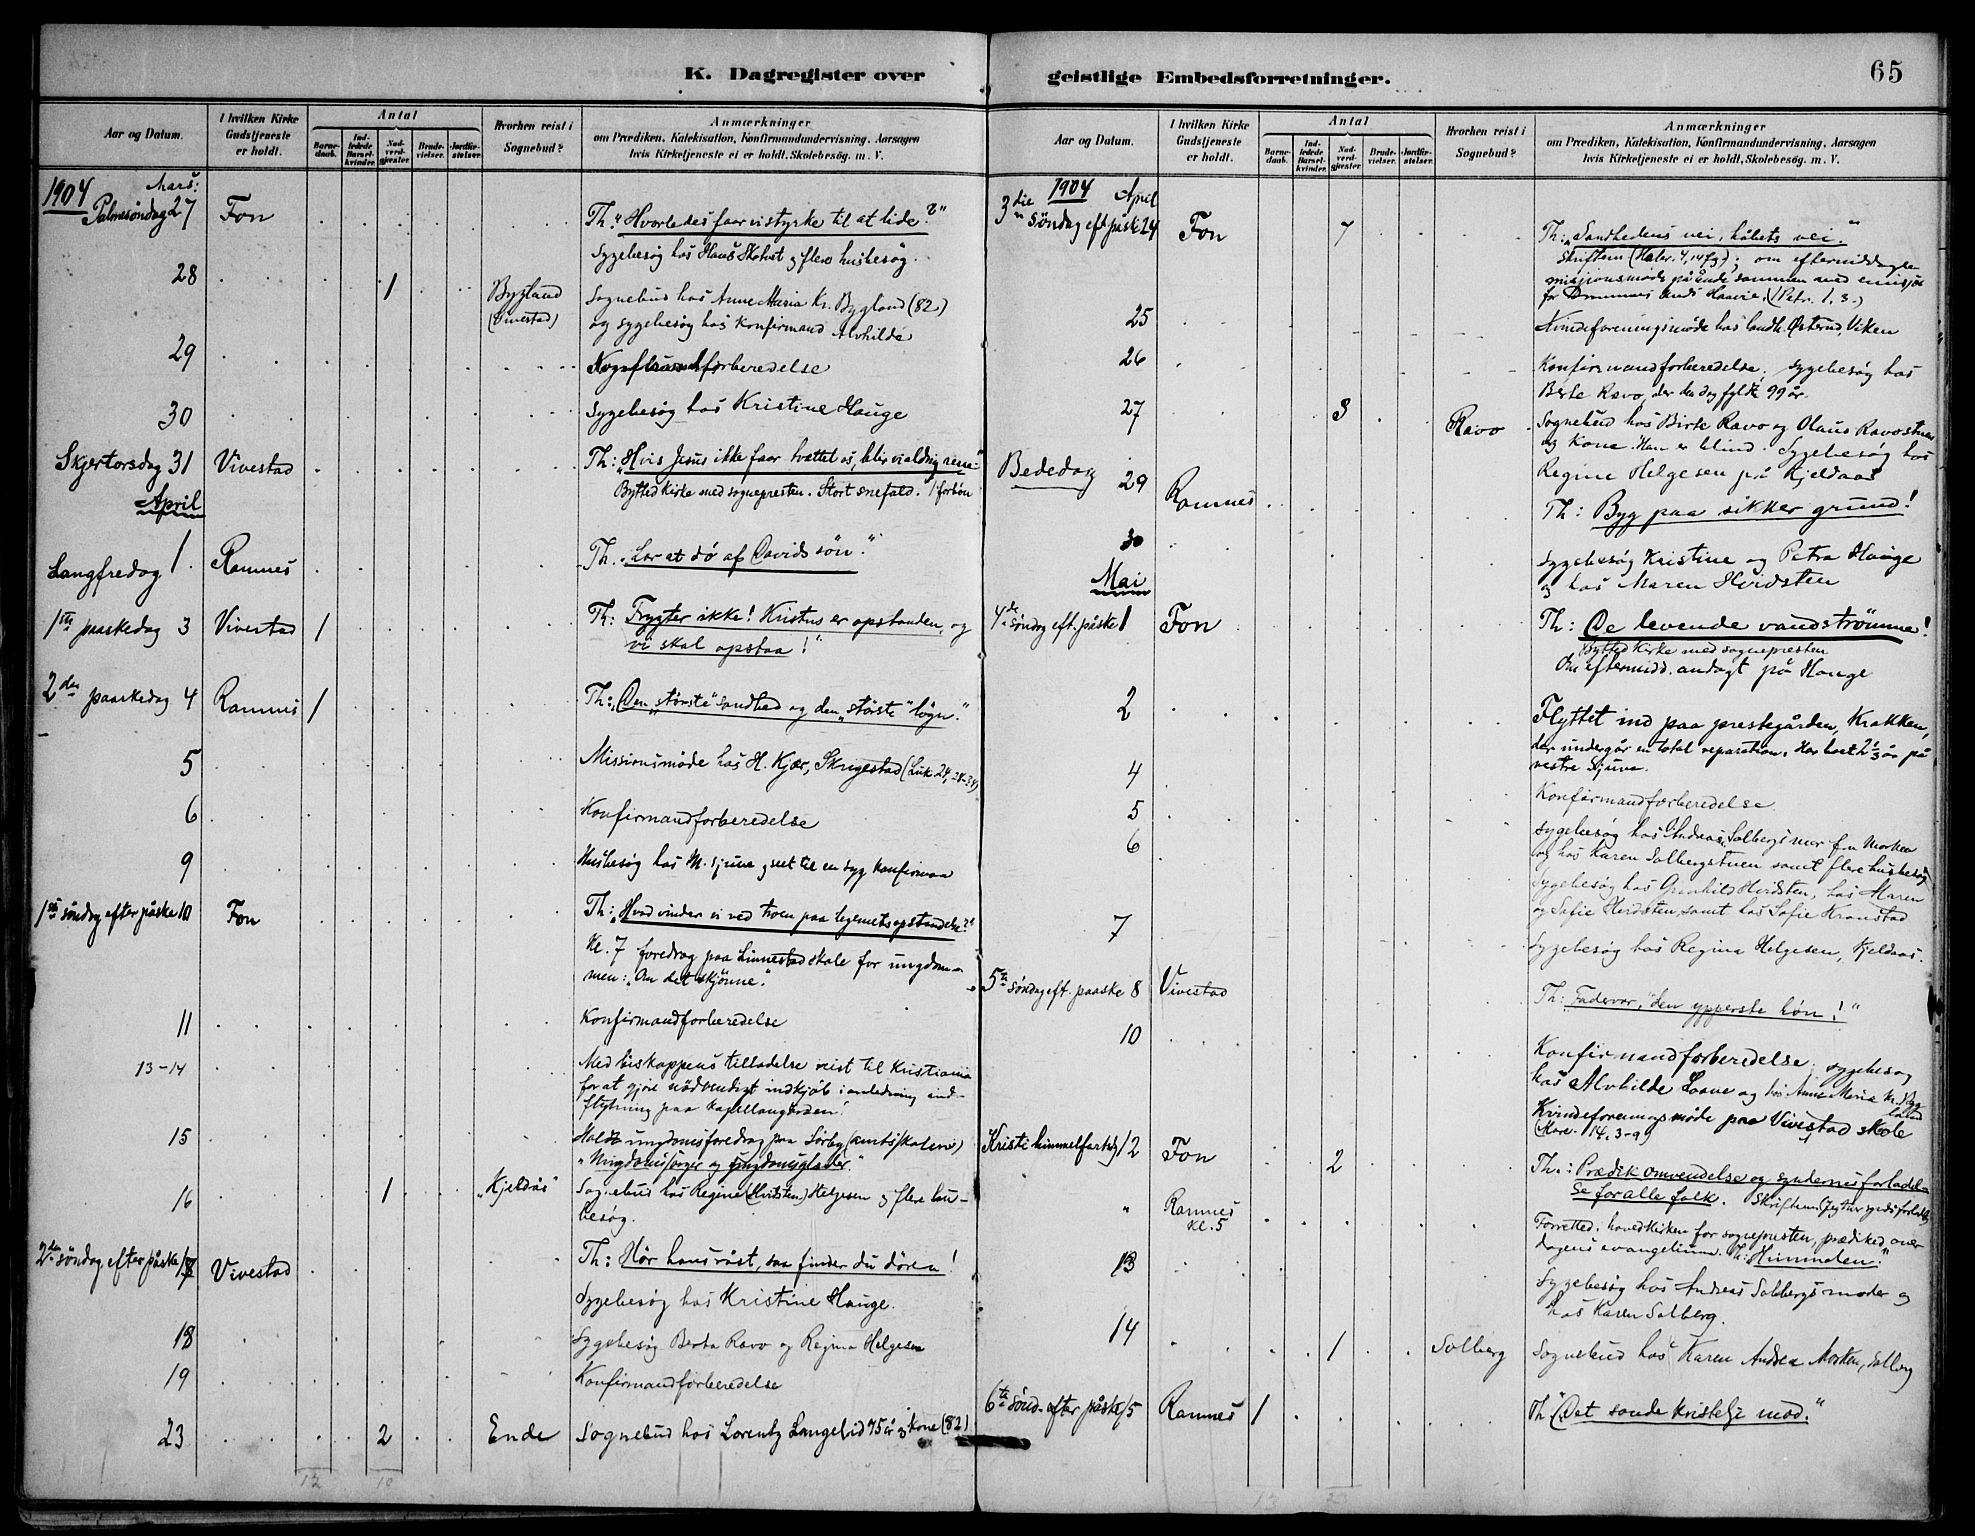 K. Dagregister over
geistlige Embedsforretninger.
65
Aar og Datum.
I hvilken Kirke
Gudstjeneste
er holdt.
Antal
Barne-
daab.
Ind-
ledede
Barsel-
kvinder.
Nad-
verd-
gjester
Brude-
vielser.
Jordfæ-
stelser.
Hvorhen reist i
Sognebud?
Anmærkninger
om Prædiken, Katekisation, Konfirmandundervisning, Aarsagen
hvis Kirketjeneste ei er holdt, Skolebesøg. m. V.
1904 Mars:
Palmesøndag 27 Fon Th. "Hvorledes faar vi styrke til at lide?"
Sygebesøg hos Hans Skohst og flere husbesøg.
28 1 Bygland Sognebud hos Anne Maria Kr. Bygland (82.)
(Vivestad) og sygebesøg hos Konfirmand Alvhilde
29 forberedelse
30 Sygebesøg hos Kristine Hauge
Skjertorsdag 31 Vivestad Th: "Hvis Jesus ikke faar tvættet os, bliv vi aldrig rene"
Bytted Kirke med sognepresten. Stort snefald. 1 forbøn
April
Langfredag 1. Ramnes Th. "Lær at dø af Davids søn."
1ste paaskedag 3 Vivestad 1 Th: Frygter ikke! Kristus er opstanden, og
vi skal opstaa!"
2den paaskedag 4 Ramnes 1 Th: "Den "største" sandhed og den "største" løgn."
5 Missionsmøde hos H. Kjær, Skrigestad (Luk. 24, 28-34)
6 Konfirmandforberedelse
9 Husbesøg hos M. Sjuve og seet til en syg konfirman
1ste søndag efter påske 10 Fon Th: "Hvad vinder vi ved troen paa legemets opstandelse?"
Kl. 7 foredrag paa Linnestad skole for ungdom-
men: "Om det skjønne."
11 Konfirmandforberedelse
13-14 Med biskoppens tilladelse reist til Kristiania
for at gjøre nødvendigt indkjøb i anledning ind-
flytning paa kapellangården!
15 Holdt ungdomsforedrag paa Sørby (amtsskolen)
"Ungdomssorger og ungdomsglæder."
16 1 "Kjeldås" Sognebud hos Regine (Hvitsten) Helgesen og flere hus-
besøg.
2den søndag efter påske 17 Vivestad Th: Hør hans røst, saa finder du døren!
Sygebesøg hos Kristine Hauge.
18 Sygebesøg Berta Ravo og Regina Helgesen
19 Konfirmandforberedelse
23 2 Ende Sognebud hos Lorentz Langelid 75 år og Kone (82)
12 10
Aar og Datum.
I hvilken Kirke
Gudstjeneste
er holdt.
Antal
Barne-
daab.
Ind-
ledede
Barsel-
kvinder.
Nad-
verd-
gjester
Brude-
vielser.
Jordfæ-
stelser.
Hvorhen reist i
Sognebud?
Anmærkninger
om Prædiken, Katekisation, Konfirmandundervisning, Aarsagen
hvis Kirketjeneste ei er holdt, Skolebesøg. m. V.
1904 April
3die søndag eft. påske 24 Fon 7 Th: "Sandhedens vei, håbets vei."
Skriftem (Hebr. 4, 14 fg); om eftermiddagen
missionsmøde på Ende sammen med emisjær
for Haavie. (1 Petr. 1, 3.)
25 Kvindeforeningsmøde hos landh. Østerud, Viken
26 Konfirmandforberedelse; sygebesøg hos
Berte Ravo, der den dag fyldte 99 år.
27 3 Ravo Sognebud hos Birte Ravo og Olaus Ravostuen
og Kone. Han er blind. Sygebesøg hos
Regine Helgesen på Kjeldaas
Bededag 29 Ramnes Th: Byg paa sikker grund!
30 Sygebesøg Kristine og Petra Hauge
og hos Maren Hvidsten
Mai
4de søndag eft. påske 1 Fon Th: De levende vandstrømme!
Bytted Kirke med sognepresten
Om eftermidd. andagt på Hauge
2 Flyttet ind paa prestegården, Krakken,
der undergår en total reparation. Har boet 2 1/3 år på
vestre Sjuve.
4 Konfirmandforberedelse
5 Sygebesøg hos Andreas Solbergs mor f.n. Morken
6 og hos Karen Solbergstuen samt flere husbesøg
Sygebesøg hos Gunhild Hvidsten, hos Maren
og Sofie Hvidsten, samt hos Sofie Kronstad
7 Sygebesøg hos Regina Helgesen, Kjeldaas.
5te søndag eft. paaske 8 Vivestad Th: Fadervor, "den ypperste bøn!"
10 Konfirmandforberedelse, sygebesøg
hos Alvhilde Laave og hos Anne Maria Kr. Byg
land
Kvindeforeningsmøde paa Vivestad skole
(Marc. 14, 3-9)
Kristi himmelfartsdg 12 Fon 2 Th.: Prædik omvendelse og syndernes forladel-
se for alle folk.
" Ramnes Forretted i hovedkirken for sognepresten, prædiked over
kl. 5 dagens evangelium. Th: Himmelen."
13 Sygebesøg hos Andreas Solbergs moder og
hos Karen Solberg.
14 1 Solberg Sognebud hos Karen Andrea Morken, Solberg
6te sønd. efter påske 15 Ramnes 1 Th "Det sande kristelige mod."